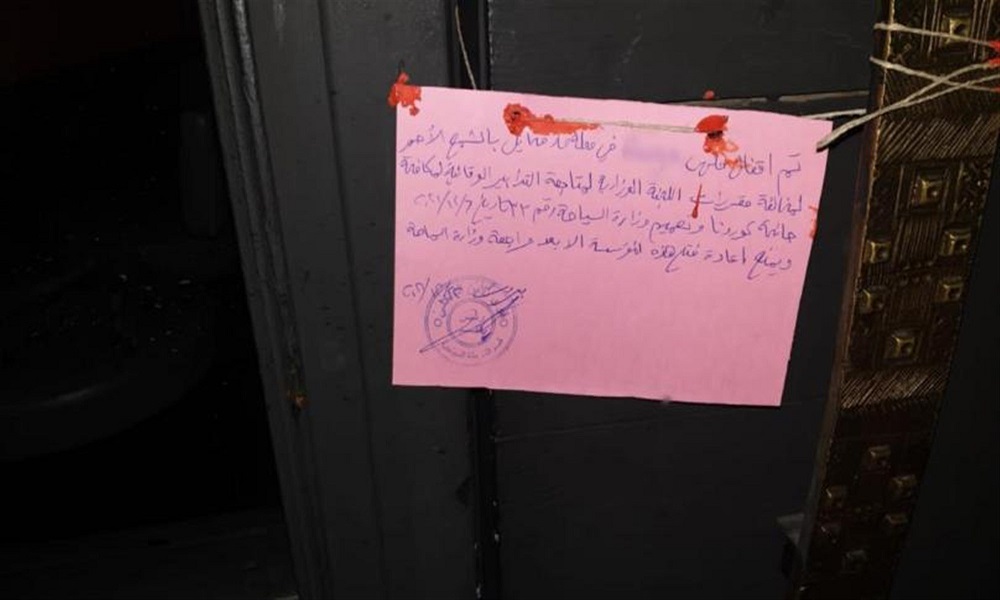 تم اقفال ملهى في محلة مار مخايل بالشمع الأحمر
لمخالفة مقررات اللجنة الوزارية لمتابعة التدابير الوقائية لمكافحة
جائحة كورونا وتعميم وزارة السياحة رقم ٢٣ تاريخ
ويمنع اعادة فتح هذه المؤسسة الا بعد مراجعة وزارة السياحة
بيروت